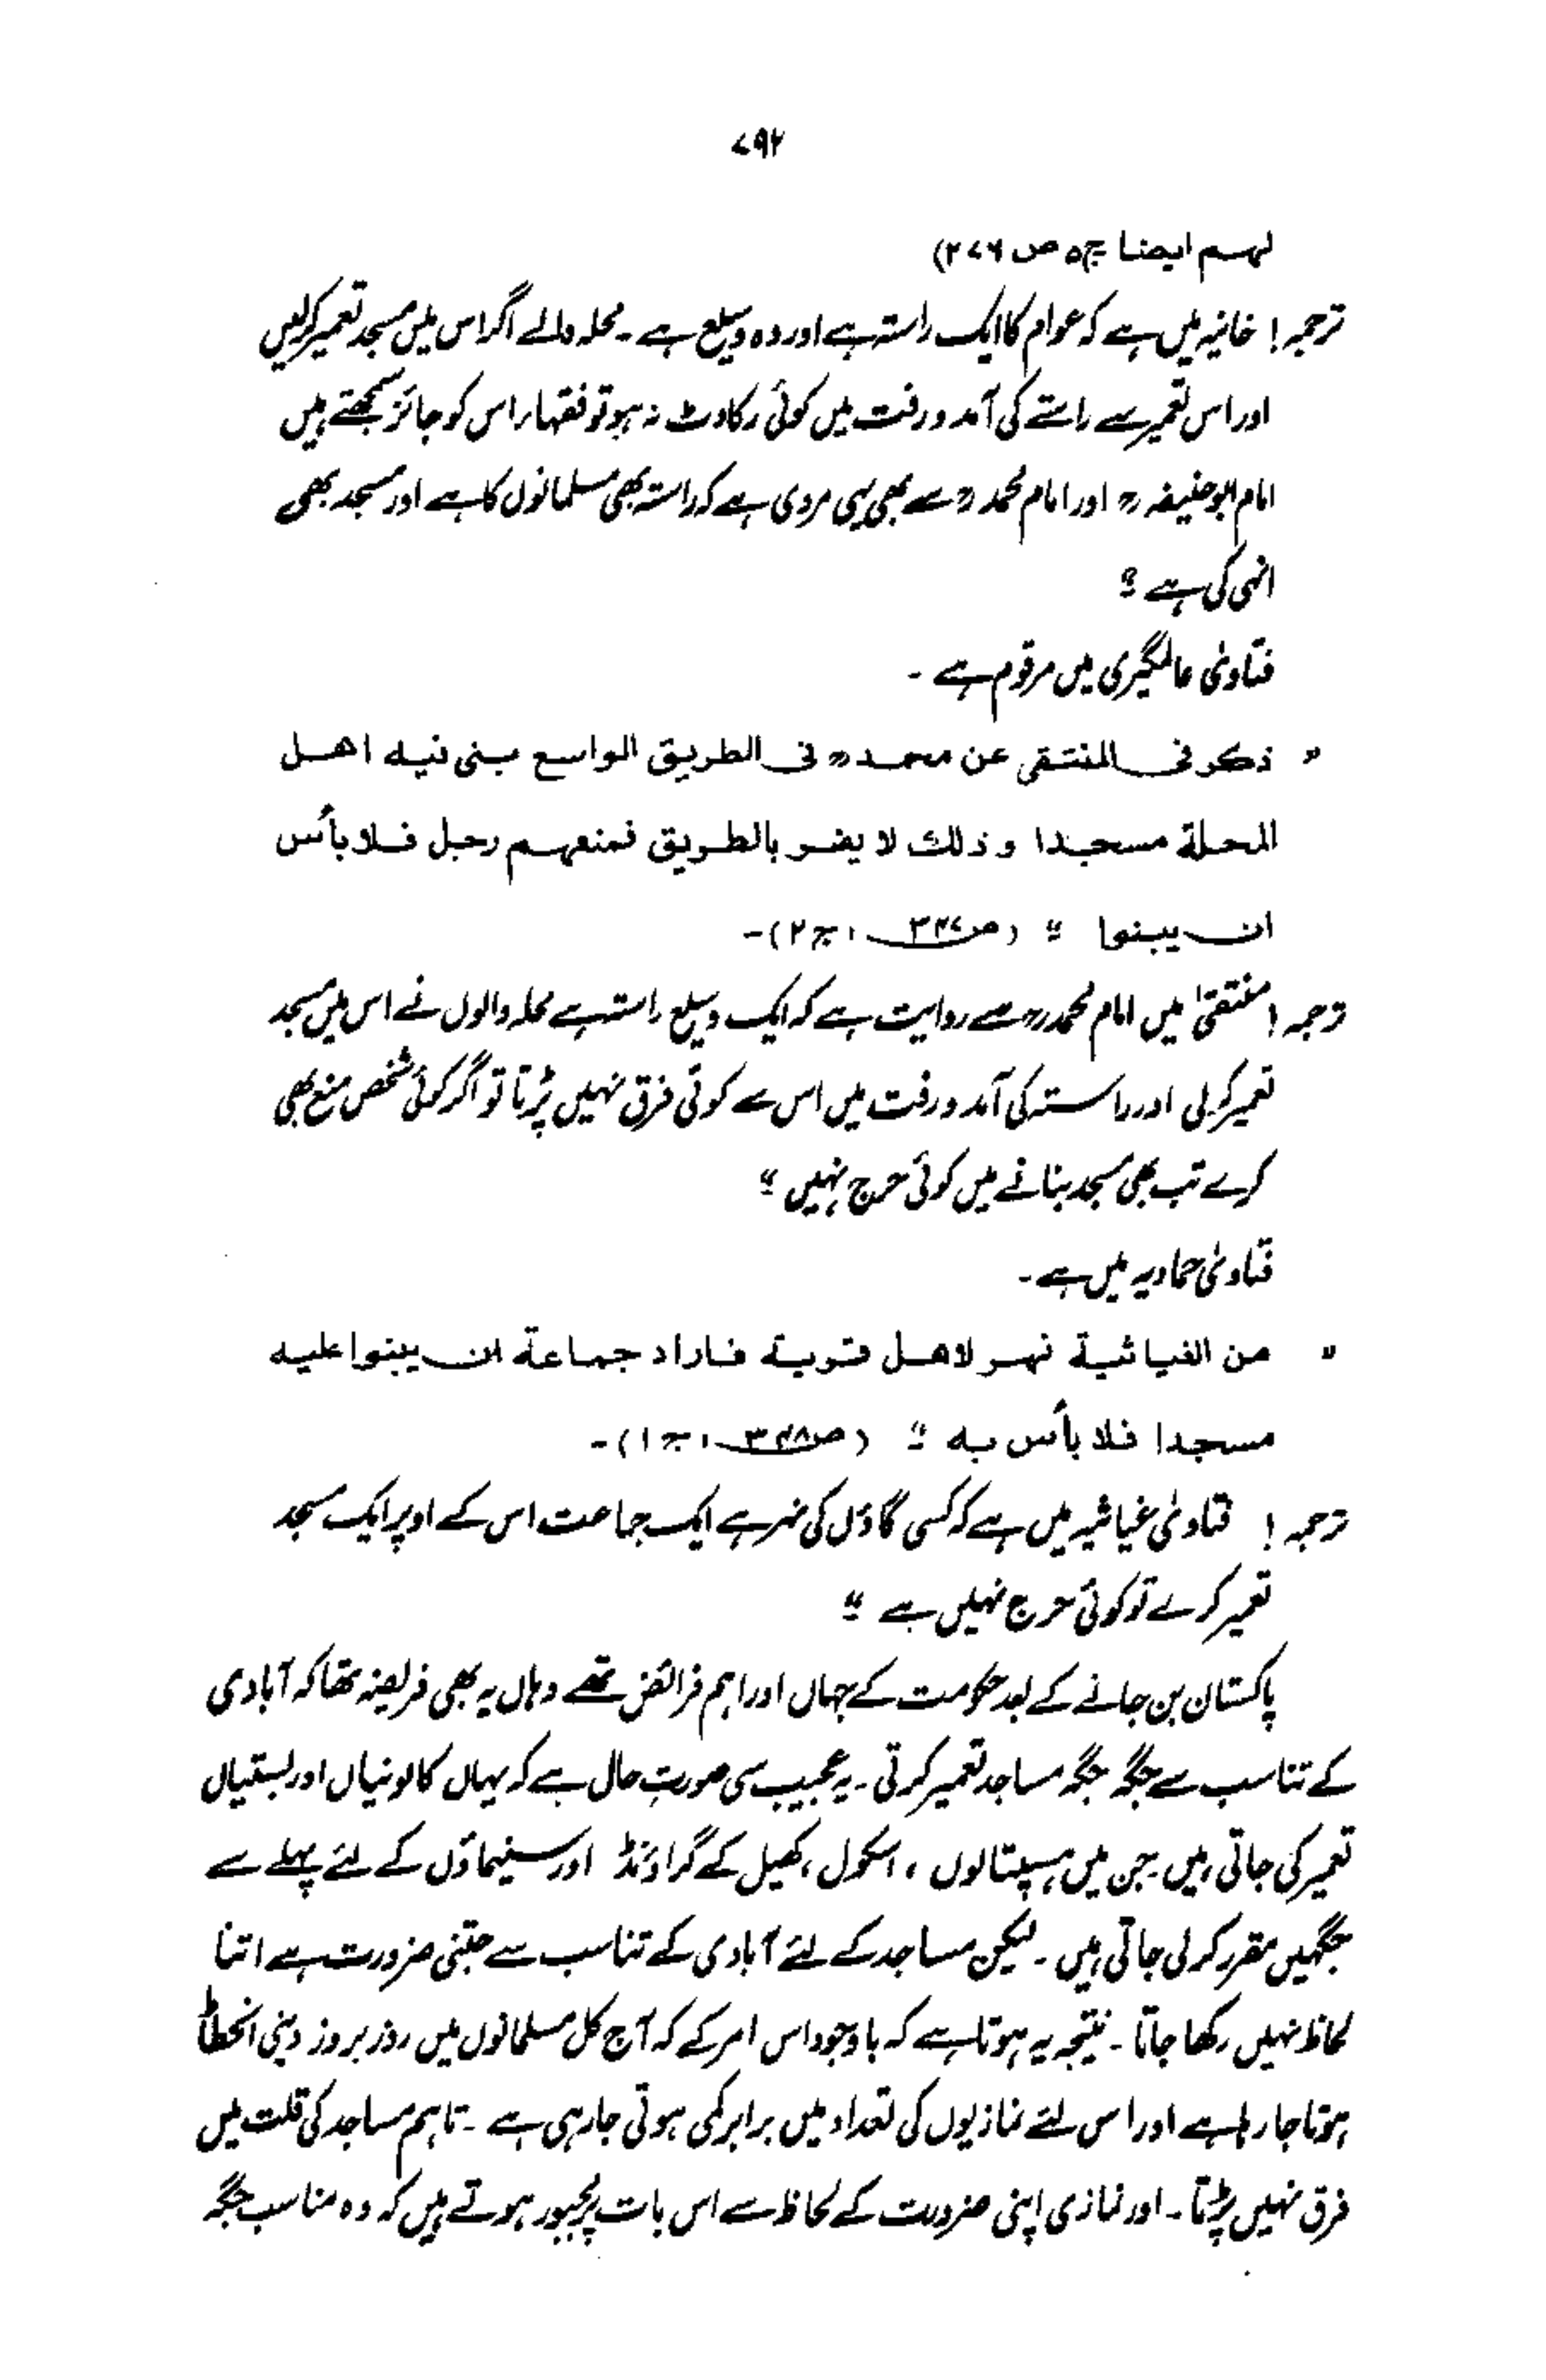 ۷۹۲
لهم ایضا ج۵ ص ۲۷۶)
ترجمہ! خانیہ میں ہے کہ عوام کا ایک راستہ ہے اور وہ وسیع ہے ۔ محلہ والے اگر اس میں مسجد تعمیر کرلیں
اور اس تعمیر سے راستے کی آمد و رفت میں کوئی رکاوٹ نہ ہو تو فقہاء اس کو جائز سمجھتے ہیں
امام ابو حنیفہ رح اور امام محمد رح سے بھی یہی مروی ہے کہ راستہ بھی مسلمانوں کا ہے اور مسجد بھی
انہی کی ہے "
فتاویٰ عالمگیری میں مرقوم ہے ۔
" ذکر فی المنتقی عن محمد رح فی الطریق الواسع بنی فیه اهل
المحلة مسجدا و ذلك لا یضر بالطریق فمنعهم رجل فلا بأس
ان یبنوا " (ص ۳۴۷ ، ج ۲)۔
ترجمہ! منتقیٰ میں امام محمد رح سے روایت ہے کہ ایک وسیع راستہ ہے محلہ والوں نے اس میں مسجد
تعمیر کرلی اور راستہ کی آمد و رفت میں اس سے کوئی فرق نہیں پڑتا تو اگر کوئی شخص منع بھی
کرے تب بھی مسجد بنانے میں کوئی حرج نہیں "
فتاویٰ حمادیہ میں ہے ۔
" من الغیاثیة نهر لاهل قریة فاراد جماعة ان یبنوا علیه
مسجدا فلا بأس به " (ص ۳۴۸ ، ج ۱)۔
ترجمہ! فتاویٰ غیاثیہ میں ہے کہ کسی گاؤں کی نہر ہے ایک جماعت اس کے اوپر ایک مسجد
تعمیر کرے تو کوئی حرج نہیں ہے "
پاکستان بن جانے کے بعد حکومت کے جہاں اور اہم فرائض تھے وہاں یہ بھی فریضہ تھا کہ آبادی
کے تناسب سے جگہ جگہ مساجد تعمیر کرتی ۔ یہ عجیب سی صورتِ حال ہے کہ یہاں کالونیاں اور بستیاں
تعمیر کی جاتی ہیں جن میں ہسپتالوں ، اسکول ، کھیل کے گراؤنڈ اور سینماؤں کے لئے پہلے سے
جگہیں مقرر کر لی جاتی ہیں ۔ لیکن مساجد کے لئے آبادی کے تناسب سے جتنی ضرورت ہے اتنا
لحاظ نہیں رکھا جاتا ۔ نتیجہ یہ ہوتا ہے کہ باوجود اس امر کے کہ آج کل مسلمانوں میں روز بروز دینی انحطاط
ہوتا جا رہا ہے اور اس لئے نمازیوں کی تعداد میں برابر کمی ہوتی جا رہی ہے ۔ تاہم مساجد کی قلت میں
فرق نہیں پڑتا ۔ اور نمازی اپنی ضرورت کے لحاظ سے اس بات پر مجبور ہوتے ہیں کہ وہ مناسب جگہ